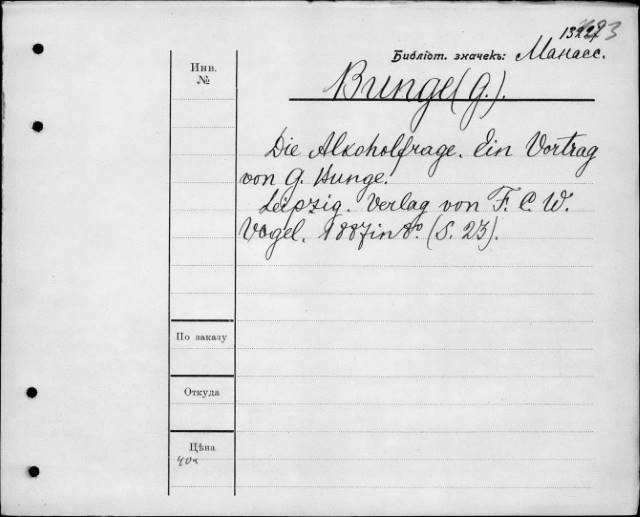 Библіот. значекъ: Манасс.
Инв.
№
Bunge (G.).
Die Alkoholfrage. Ein Vortrag
von G. Bunge.
Leipzig. Verlag von F. C. W.
Vogel. 1887 in 8º. (S. 23).
По заказу
Откуда
Цѣна